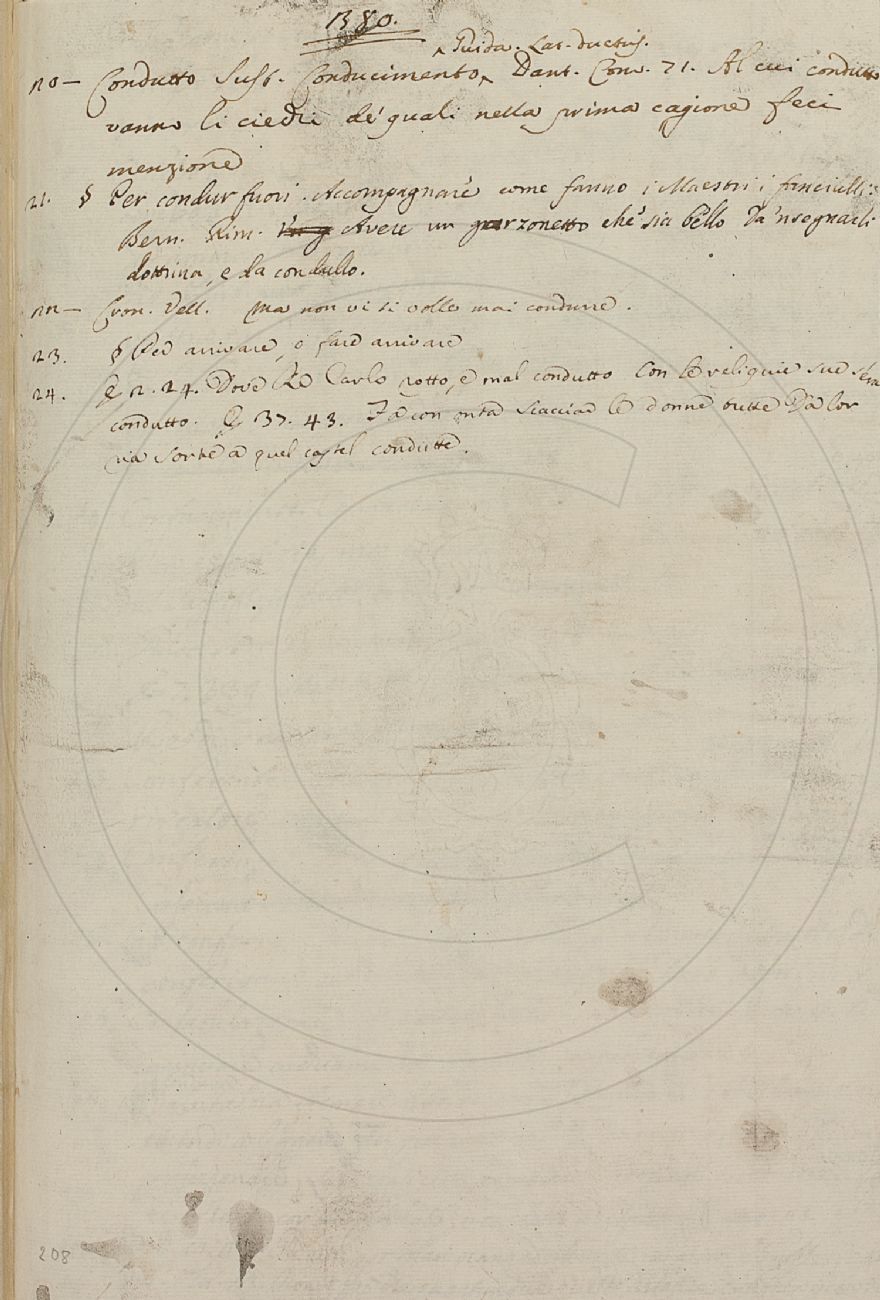 1380.
^ Guida. Lat. ductus.
20 — Condutto Sust. Conducimento ^ Dant. Conv. 71. Al cui condutto
vanno li ciechi de' quali nella prima cagione feci
menzione
21. § Per condur fuori. Accompagnare come fanno i Maestri i fanciulli:
Bern. Rim. Avere un garzonetto che sia bello Da 'nsegnarli
dottrina, e da condullo.
22 — Cron. Vell. Ma non vi si volle mai condurre.
23. § Per arrivare, e fare arrivare
24. E 2. 24. Dove Re Carlo rotto, e mal condutto Con le reliquie sue s'era
condutto. E 37. 43. Fa con onta scacciar le donne tutte Da lor
ria sorte a quel castel condutte.
208